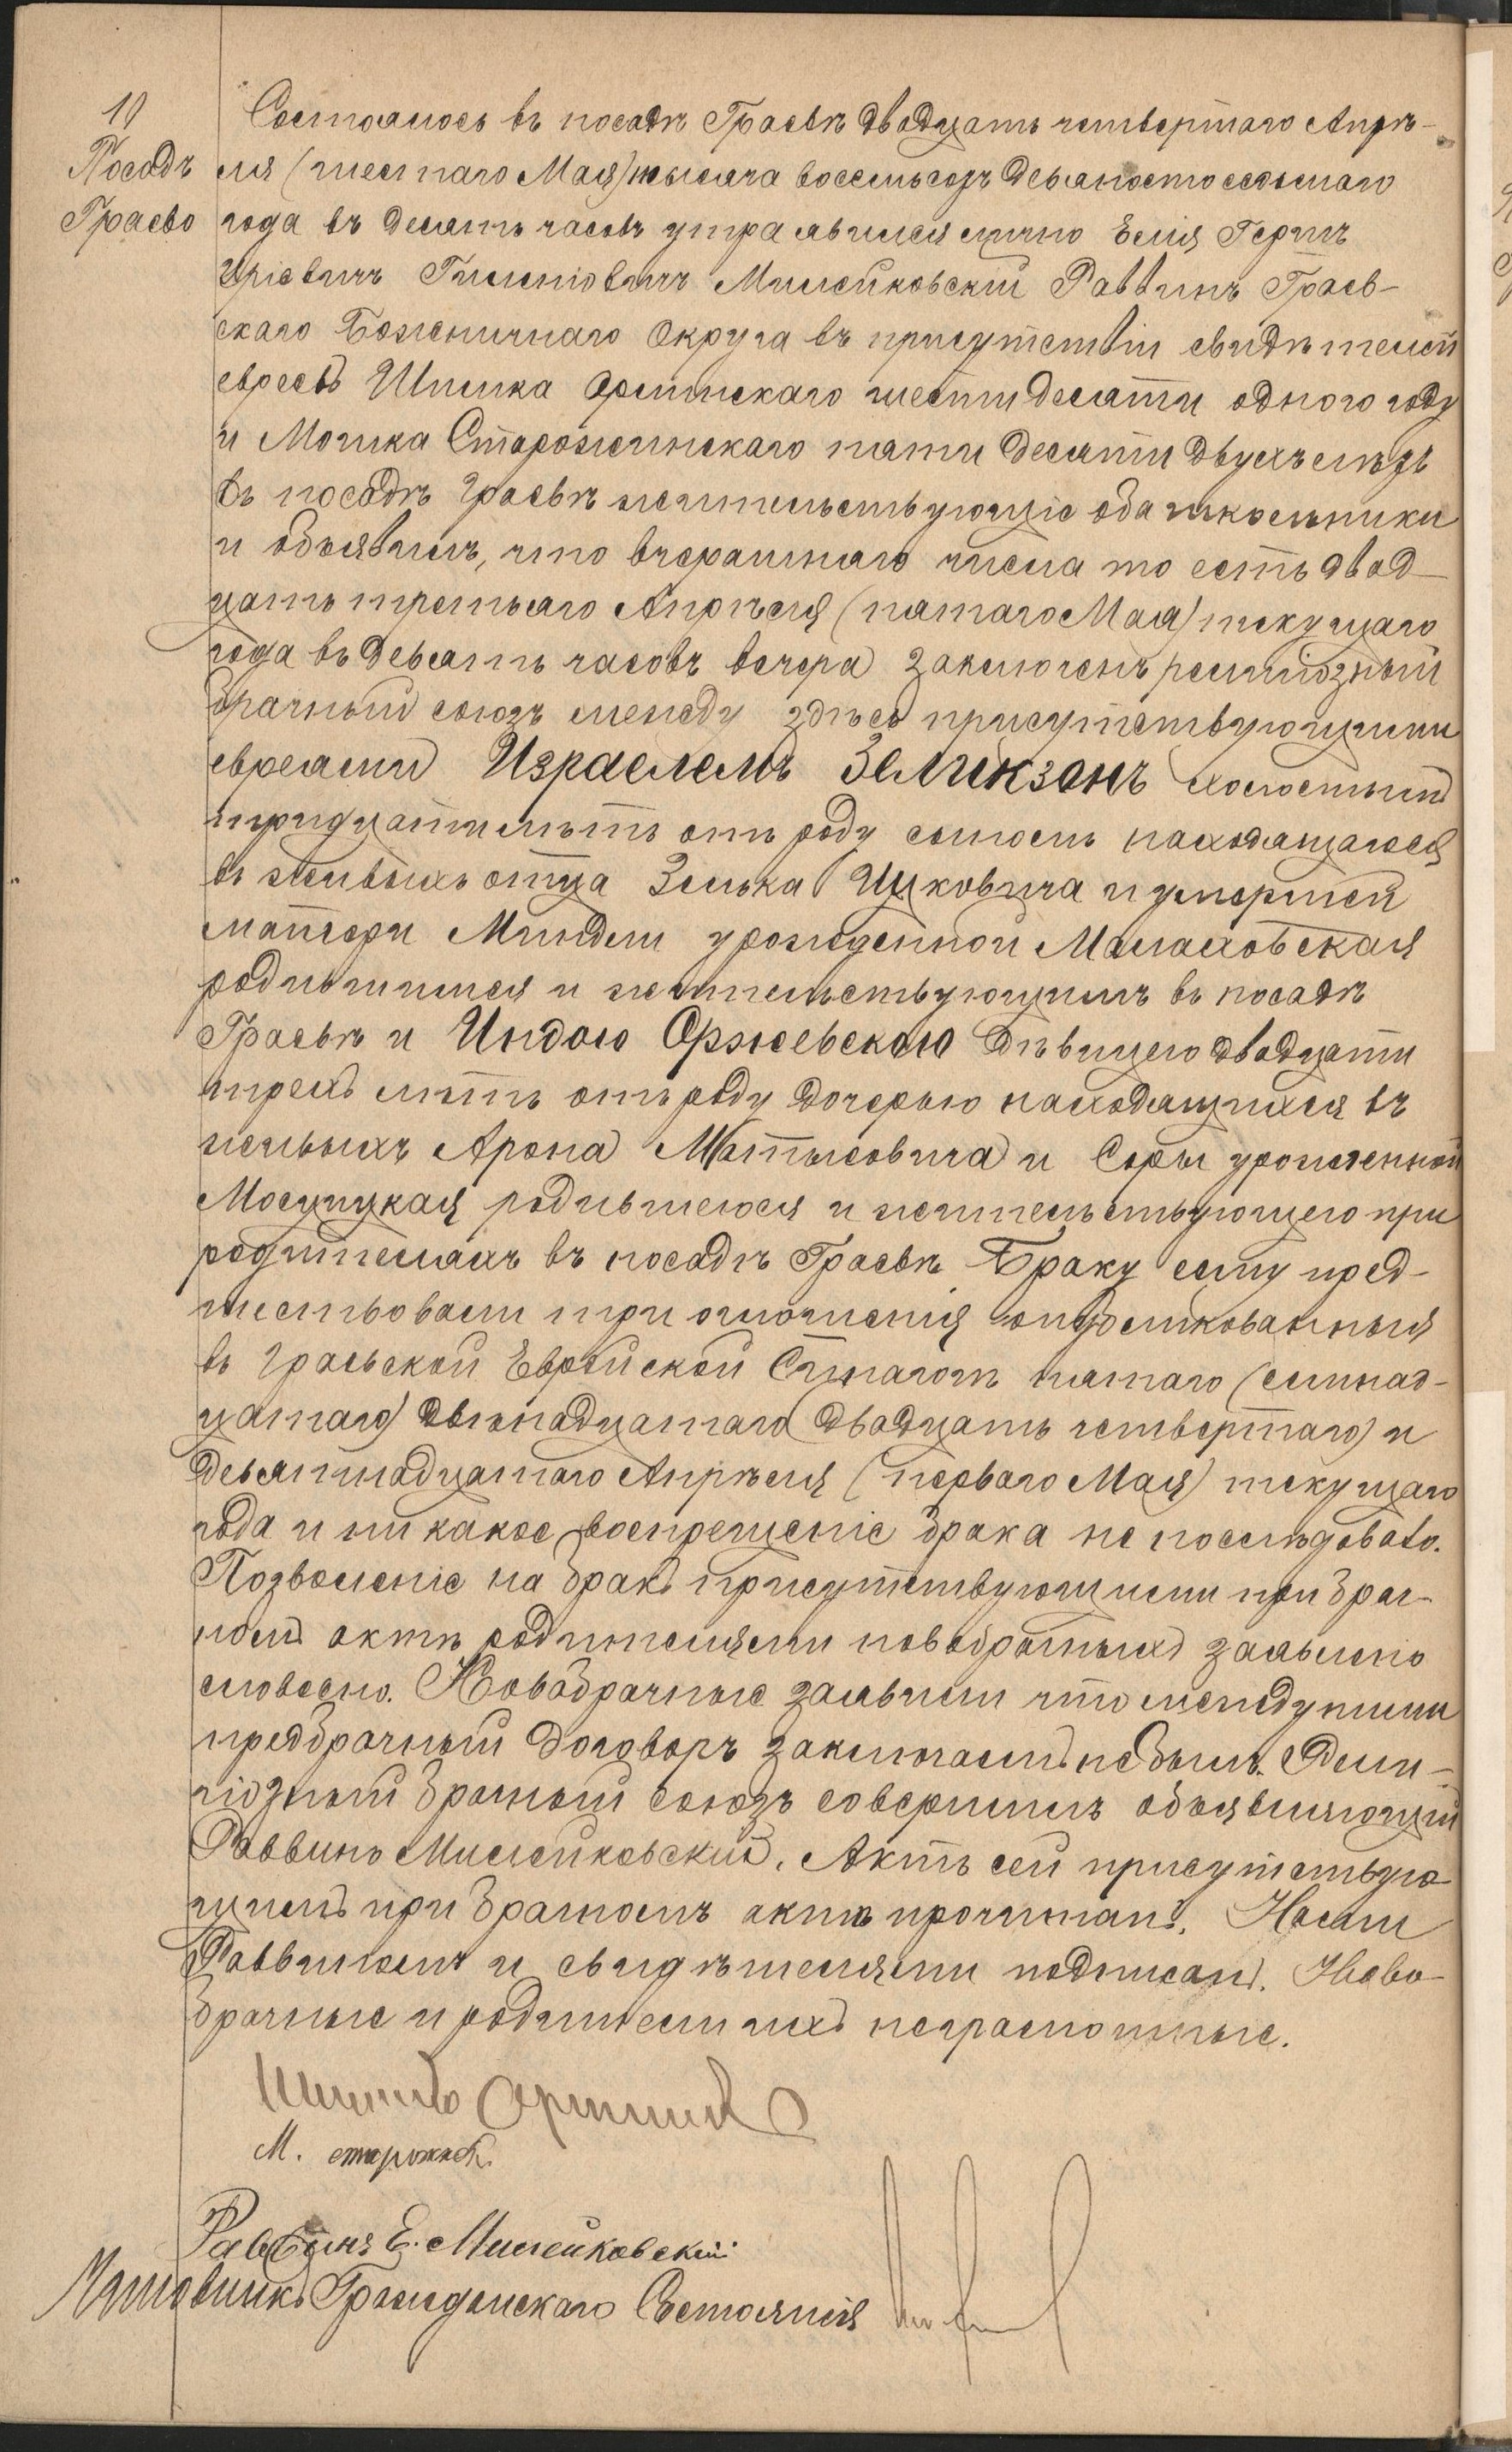 10
Посадъ
Граево
Состоялось въ посадѣ Граевѣ двадцать четвертаго Апрѣ-
ля (шестаго Мая) тысяча восемьсотъ девяносто седьмаго
года въ десять часовъ утра явился лично Елія Гершъ
Милейковскій Раввинъ Граев-
скаго Божничнаго Округа въ присутствіи свидѣтелей
евреевъ Шлика Орлинскаго шестидесяти одного году
и Мошка Старожинскаго пяти десяти двухъ лѣтъ
въ посадѣ Граевѣ жительствующіе оба школьники
и объявилъ, что вчерашняго числа то есть двад-
цать третьяго Апрѣля (пятаго Мая) текущаго
года въ девять часовъ вечера заключенъ религіозный
брачный союзъ между здѣсь присутствующими
евреями Израелемъ Зеликзонъ холостымъ
тридцати лѣтъ отъ роду сыномъ находящагося
въ живыхъ отца Зелька Ицковича и умершей
матери Миндли урожденной Малаховская
родившимся и жительствующимъ въ посадѣ
Граевѣ и Индою Оржевскою дѣвицею двадцати
трехъ лѣтъ отъ роду дочерью находящихся въ
живыхъ Арона Матысовича и Соры урожденной
Мосцицкая родившеюся и жительствующею при
родителяхъ въ посадѣ Граевѣ Браку сему пред-
шествовали три оглошенія опубликованныя
въ Граевской Еврейской Синагогѣ пятаго (семнад-
цатаго) двѣнадцатаго (двадцать четвертаго) и
девятнадцатаго Апрѣля (перваго Мая) текущаго
года и ни какое воспрещеніе брака не послѣдовало.
Позволеніе на бракъ присутствующими при брач-
номъ актѣ родителями новобрачныхъ заявлено
словесно. Новобрачные заявили что между ними
предбрачный договоръ заключаемъ не былъ. Рели-
гіозный брачный союзъ совершилъ объявляющій
Раввинъ Милейковскій. Актъ сей присутствую-
щимъ при брачномъ актѣ прочитанъ. Нами
Раввиномъ и свидѣтелями подписанъ. Ново-
брачные и родители ихъ неграмотные.
М. старожин.
Раввинъ Е. Милейковскій
Чиновникъ Гражданскаго Состоянія